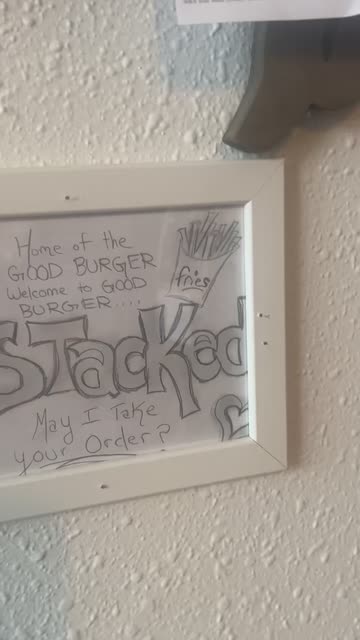 Home of the
GOOD BURGER
Welcome to GOOD
BURGER....
fries
STacKed
May I Take
your Order?